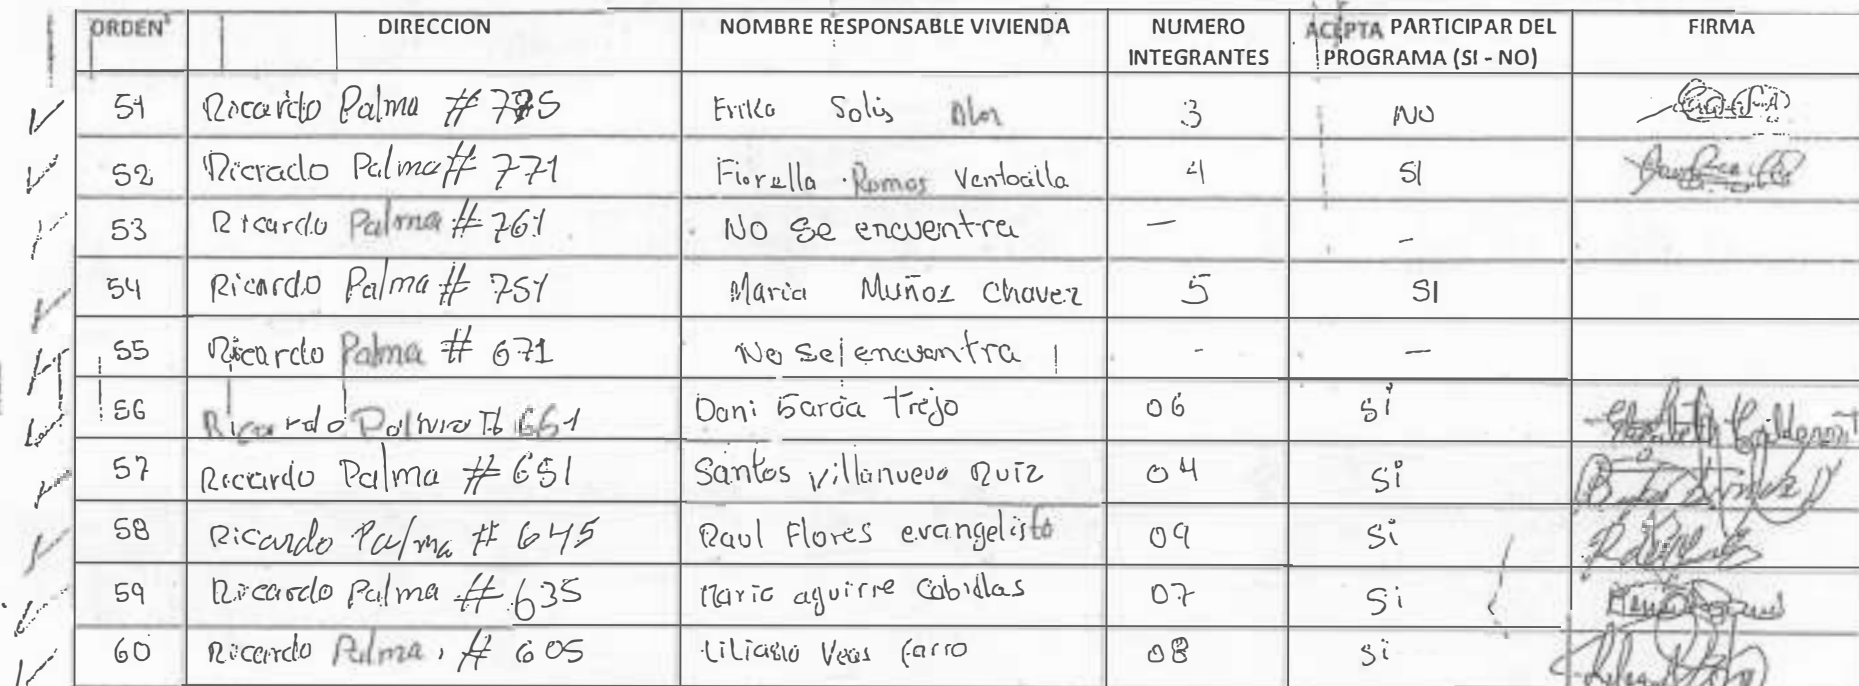 ORDEN DIRECCION NOMBRE RESPONSABLE VIVIENDA NUMERO INTEGRANTES ACEPTA PARTICIPAR DEL PROGRAMA (SI - NO) FIRMA
51 Ricardo Palma # 775 Erika Solis Alor 3 NO
52 Ricrado Palma # 771 Fiorella Ramos Ventocilla 4 SI
53 Ricardo Palma # 761 No Se encuentra — -
54 Ricardo Palma # 751 Maria Muñoz Chavez 5 SI
55 Ricardo Palma # 671 No Se encuentra - —
56 Ricardo Palma # 661 Dani Garcia Trejo 06 si
57 Ricardo Palma # 651 Santos Villanueva Ruiz 04 Si
58 Ricardo Palma # 645 Raul Flores evangelista 09 Si
59 Ricardo Palma # 635 Mario aguirre Cabillas 07 Si
60 Ricardo Palma # 605 08 si